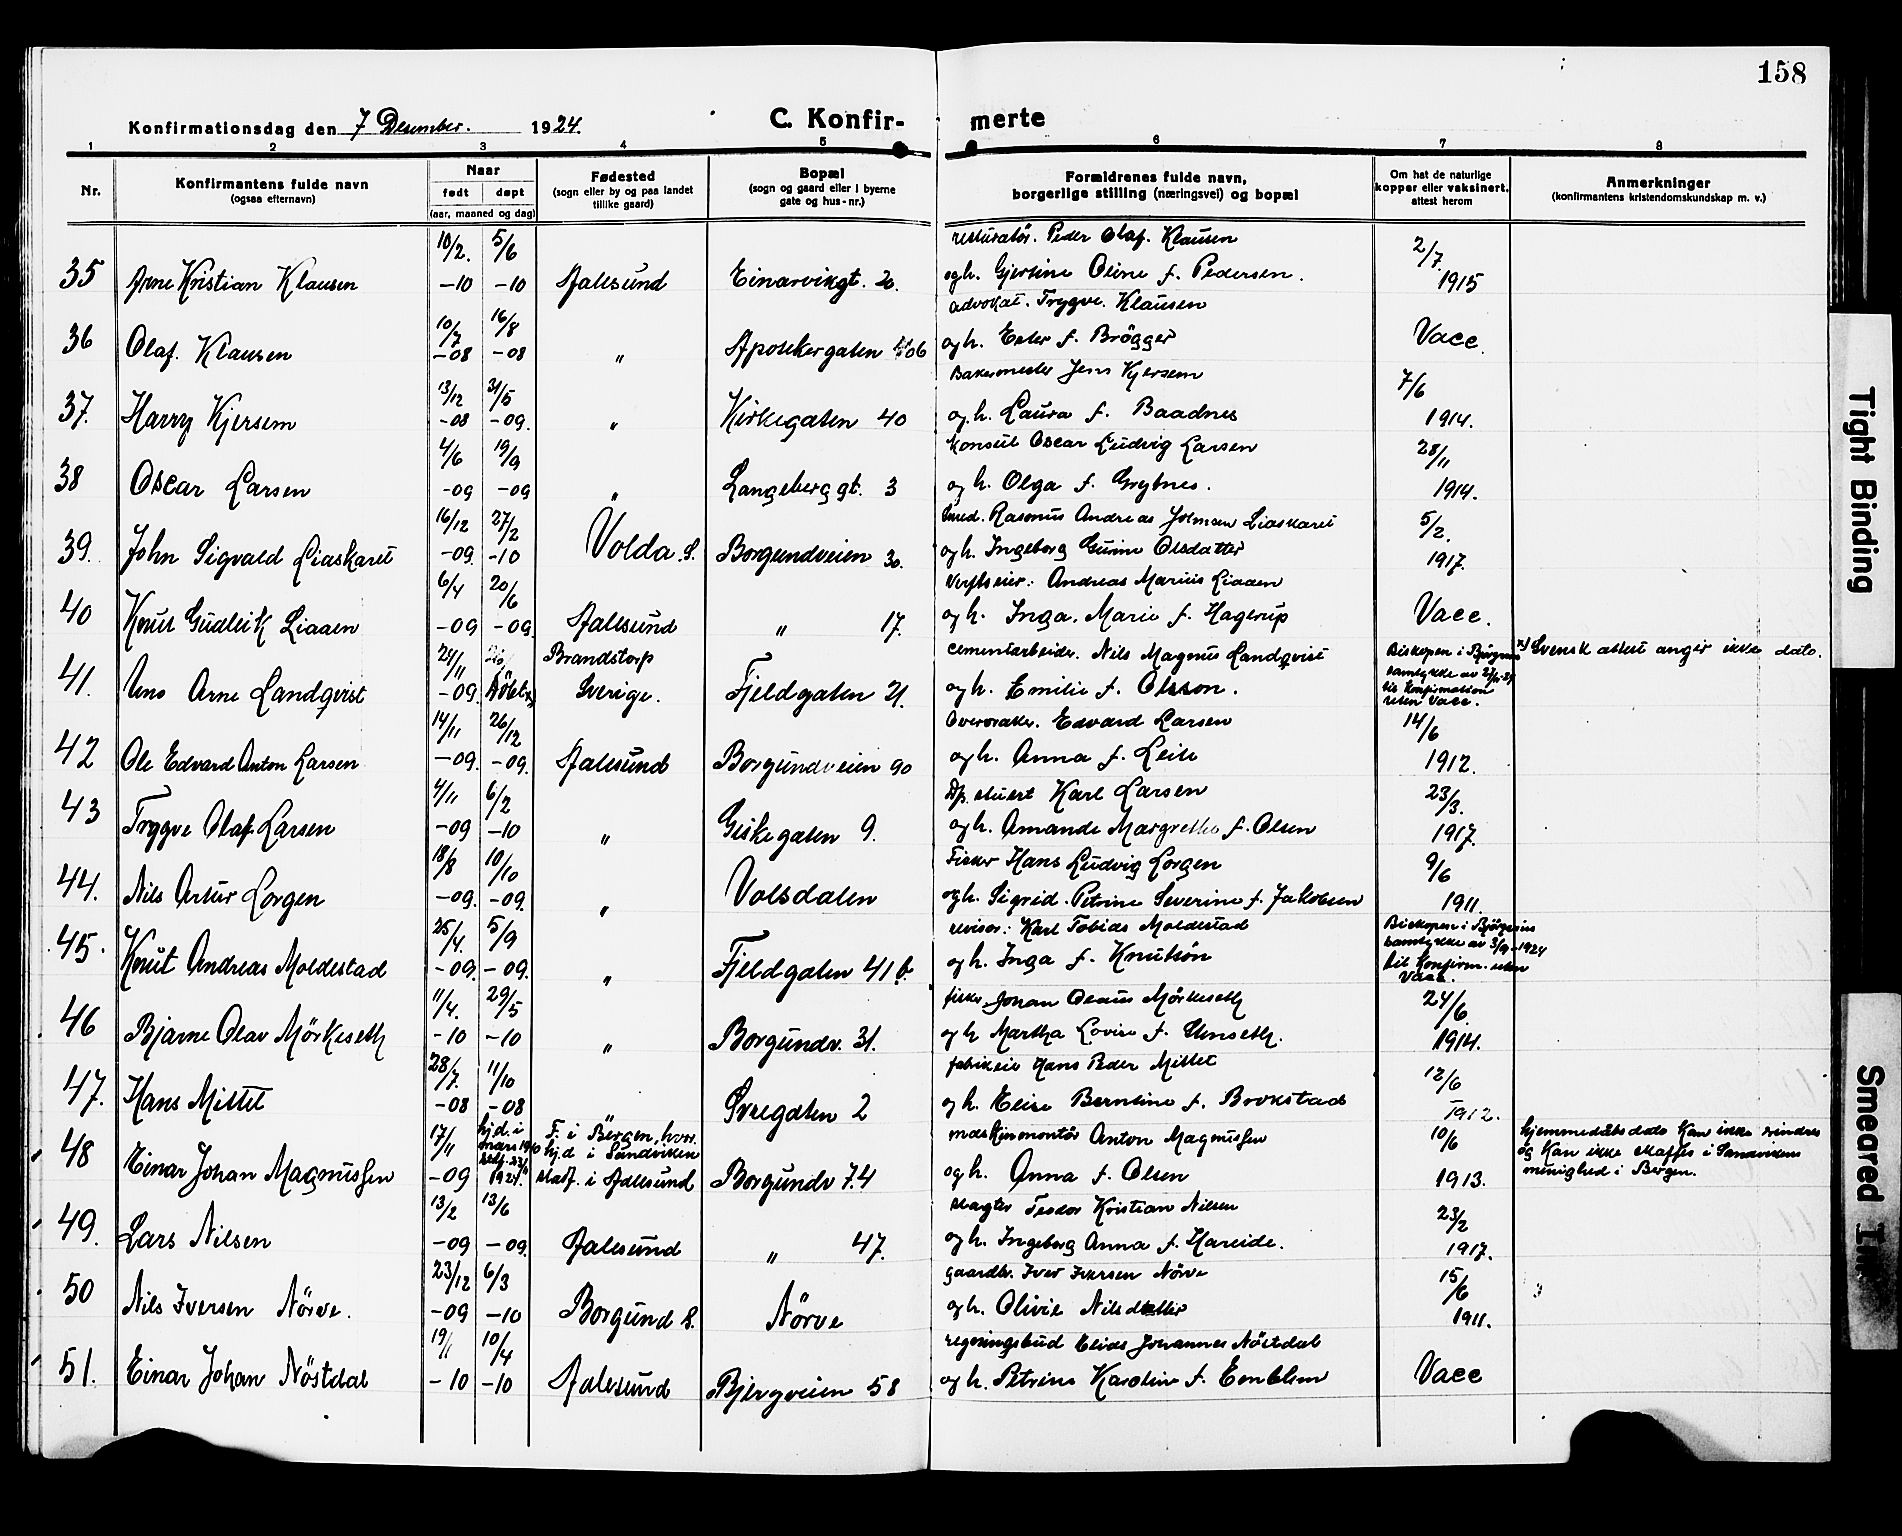 158
Konfirmationsdag den 7 Desember. 1924.
C. Konfir- merte
1 2 3 4 5 6 7 8
Nr.
Konfirmantens fulde navn
(ogsaa efternavn)
Naar
født døpt
(aar, maaned og dag)
Fødested
(sogn eller by og paa landet
tillike gaard)
Bopæl
(sogn og gaard eller i byerne
gate og hus-nr.)
Forældrenes fulde navn,
borgerlige stilling (næringsvei) og bopæl
Om hat de naturlige
kopper eller vaksinert,
attest herom
Anmerkninger
(konfirmantens kristendomskundskap m. v.)
10/2. 5/6 Peder Olaf. Klausen 2/7.
35 Arne Kristian Klausen -10 -10 Aalesund Einarvikgt. 20. og h. Gjertine Oline f. Pedersen. 1915
10/7 16/8 advokat. Trygve. Klausen
36 Olaf. Klausen -08 -08 " Apotekergaten og h. Ester f. Brögger Vacc.
13/12 31/5 Bakermester Jens Kjersem 7/6
37. Harry Kjersem -08 -09. " Kirkegaten 40 og h. Laura f. Baadnes 1914.
4/6 19/9 Konsul Oscar Ludvig Larsen 28/11
38 Oscar Larsen -09 -09 " Langeberggt. 3 og h. Olga f. Grytnes. 1914.
16/12 27/2 Smed. Rasmus Andreas Johnsen Liaskaret 5/2.
39. John Sigvald Liaskaret -09. -10 Volda. S. Borgundveien 30. og h. Ingeborg Gurine Olsdatter 1917.
6/4 20/6 Verftseier: Andreas Marius Liaaen
40 Knut Gudleik Liaaen -09 -09. Aalesund " 17. og h. Inga. Marie f. Hagerup Vacc.
24/11 Brandstorp cementarbeider. Nils Magnus Landqvist Biskopen i Bjørgvins x) Svensk attest angir ikke dato.
41. Uno Arne Landqvist -09. Sverige. Fjeldgaten 21. og h. Emilie f. Olsson. samtykke av
til Konfirmation
uten Vacc.
14/11 26/12 Edvard Larsen 14/6
42 Ole Edvard Anton Larsen -09. -09. Aalesund Borgundveien 90 og h. Anna f. Leite 1912.
4/11 6/2 stuert Karl Larsen 23/3.
43 Trygve Olaf Larsen -09 -10 " Giskegaten 9. og h. Amanda Margrethe f. Olsen 1917.
18/8 10/10 Fisker Hans Ludvig Lorgen 9/6
44. Nils Artur Lorgen -09. -09. " Volsdalen og h. Sigrid. Petrine Severine f. Jakobsen 1911.
25/4. 5/9 revisor: Karl Tobias Moldestad Biskopen i Bjørgvins
samtykke av 3/9-1924
45. Knut Andreas Moldestad -09. -09. " Fjeldgaten 41 b. og h. Inga f. Knutson til Konfirm. uten
Vacc.
11/4. 29/5 fisker Johan Olaus Mörkeseth 24/6.
46 Bjarne Olav Mörkeseth -10 -10 " Borgundv. 31. og h. Martha Lovise f. 1914.
28/7. 11/10 Hans Peder Mittet 12/6
47. Hans Mittet -08 -08 Sveegaten 2 og h. Elise Berntine f. Brokstad 1912.
17/11 hjd. i mars 1910 F. i Bergen, hvor hjd i Sandviken maskinmontör Anton Magnussen 10/6 hjemmedåbs dato kan ikke erindres
48 Einar Johan Magnussen -09 1924. i Aalesund Borgundv 74 og h. Anna f. Olsen 1913. og kan ikke skaffes i Sandvikens
menighed i Bergen.
13/2 13/6 slagter Teodor Kristian Nilsen 23/2
49. Lars Nilsen -09 -09. Aalesund " 47. og h. Ingeborg Anna f. Hareide. 1917.
23/12 6/3 gaardbr. Iver Iversen Nörve 15/6
50 Nils Iversen Nörve. -09 -10 Borgund S. Nörve og h. Olivie Nilsdatter 1911.
19/1 10/4 regningsbud Elias Johannes Nöstdal
51. Einar Johan Nöstdal -10 -10 Aalesund Bjergveien 58 og h. Petrine Karoline f. Emblem Vacc
Tight Binding
Smeared Ink